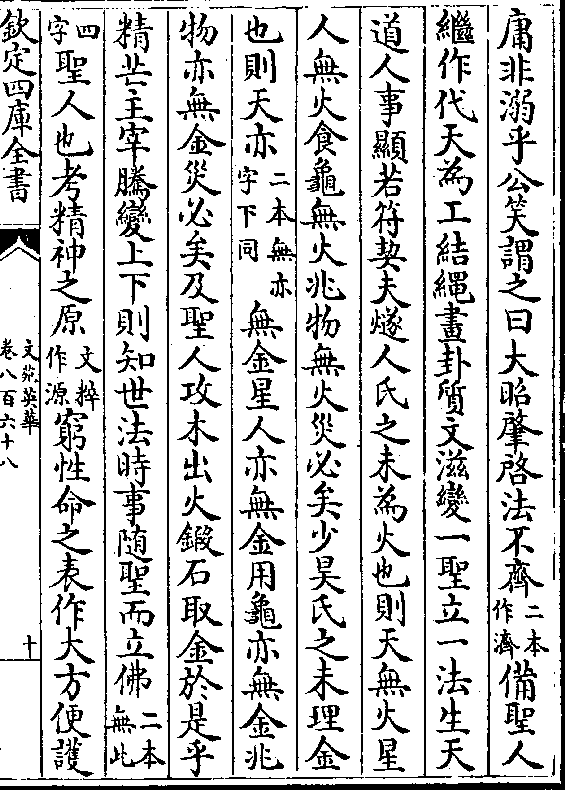 庸非溺乎公笑謂之曰大昭肇啓法不齊二本作濟備聖人
繼作代天為工結繩畫卦質文滋變一聖立一法生天
道人事顯若符契夫燧人氏之未為火也則天無火星
人無火食龜無火兆物無火災必矣少昊氏之未理金
也則天亦二本無亦字下同無金星人亦無金用龜亦無金兆
物亦無金災必矣及聖人攻木出火鍛石取金於是乎
精芒主宰騰變上下則知世法時事随聖而立佛二本無此
四字聖人也考精神之原文粹作源窮性命之表作大方便護
欽定四庫全書
文苑英華
卷八百六十八
十